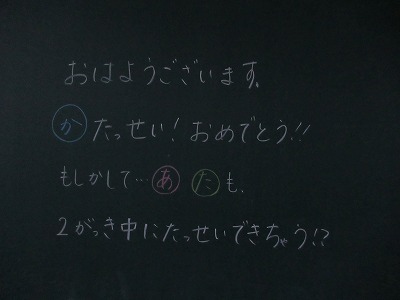 おはようございます。
か たっせい！おめでとう!!
もしかして…あ た も、
2がっき中にたっせいできちゃう!?